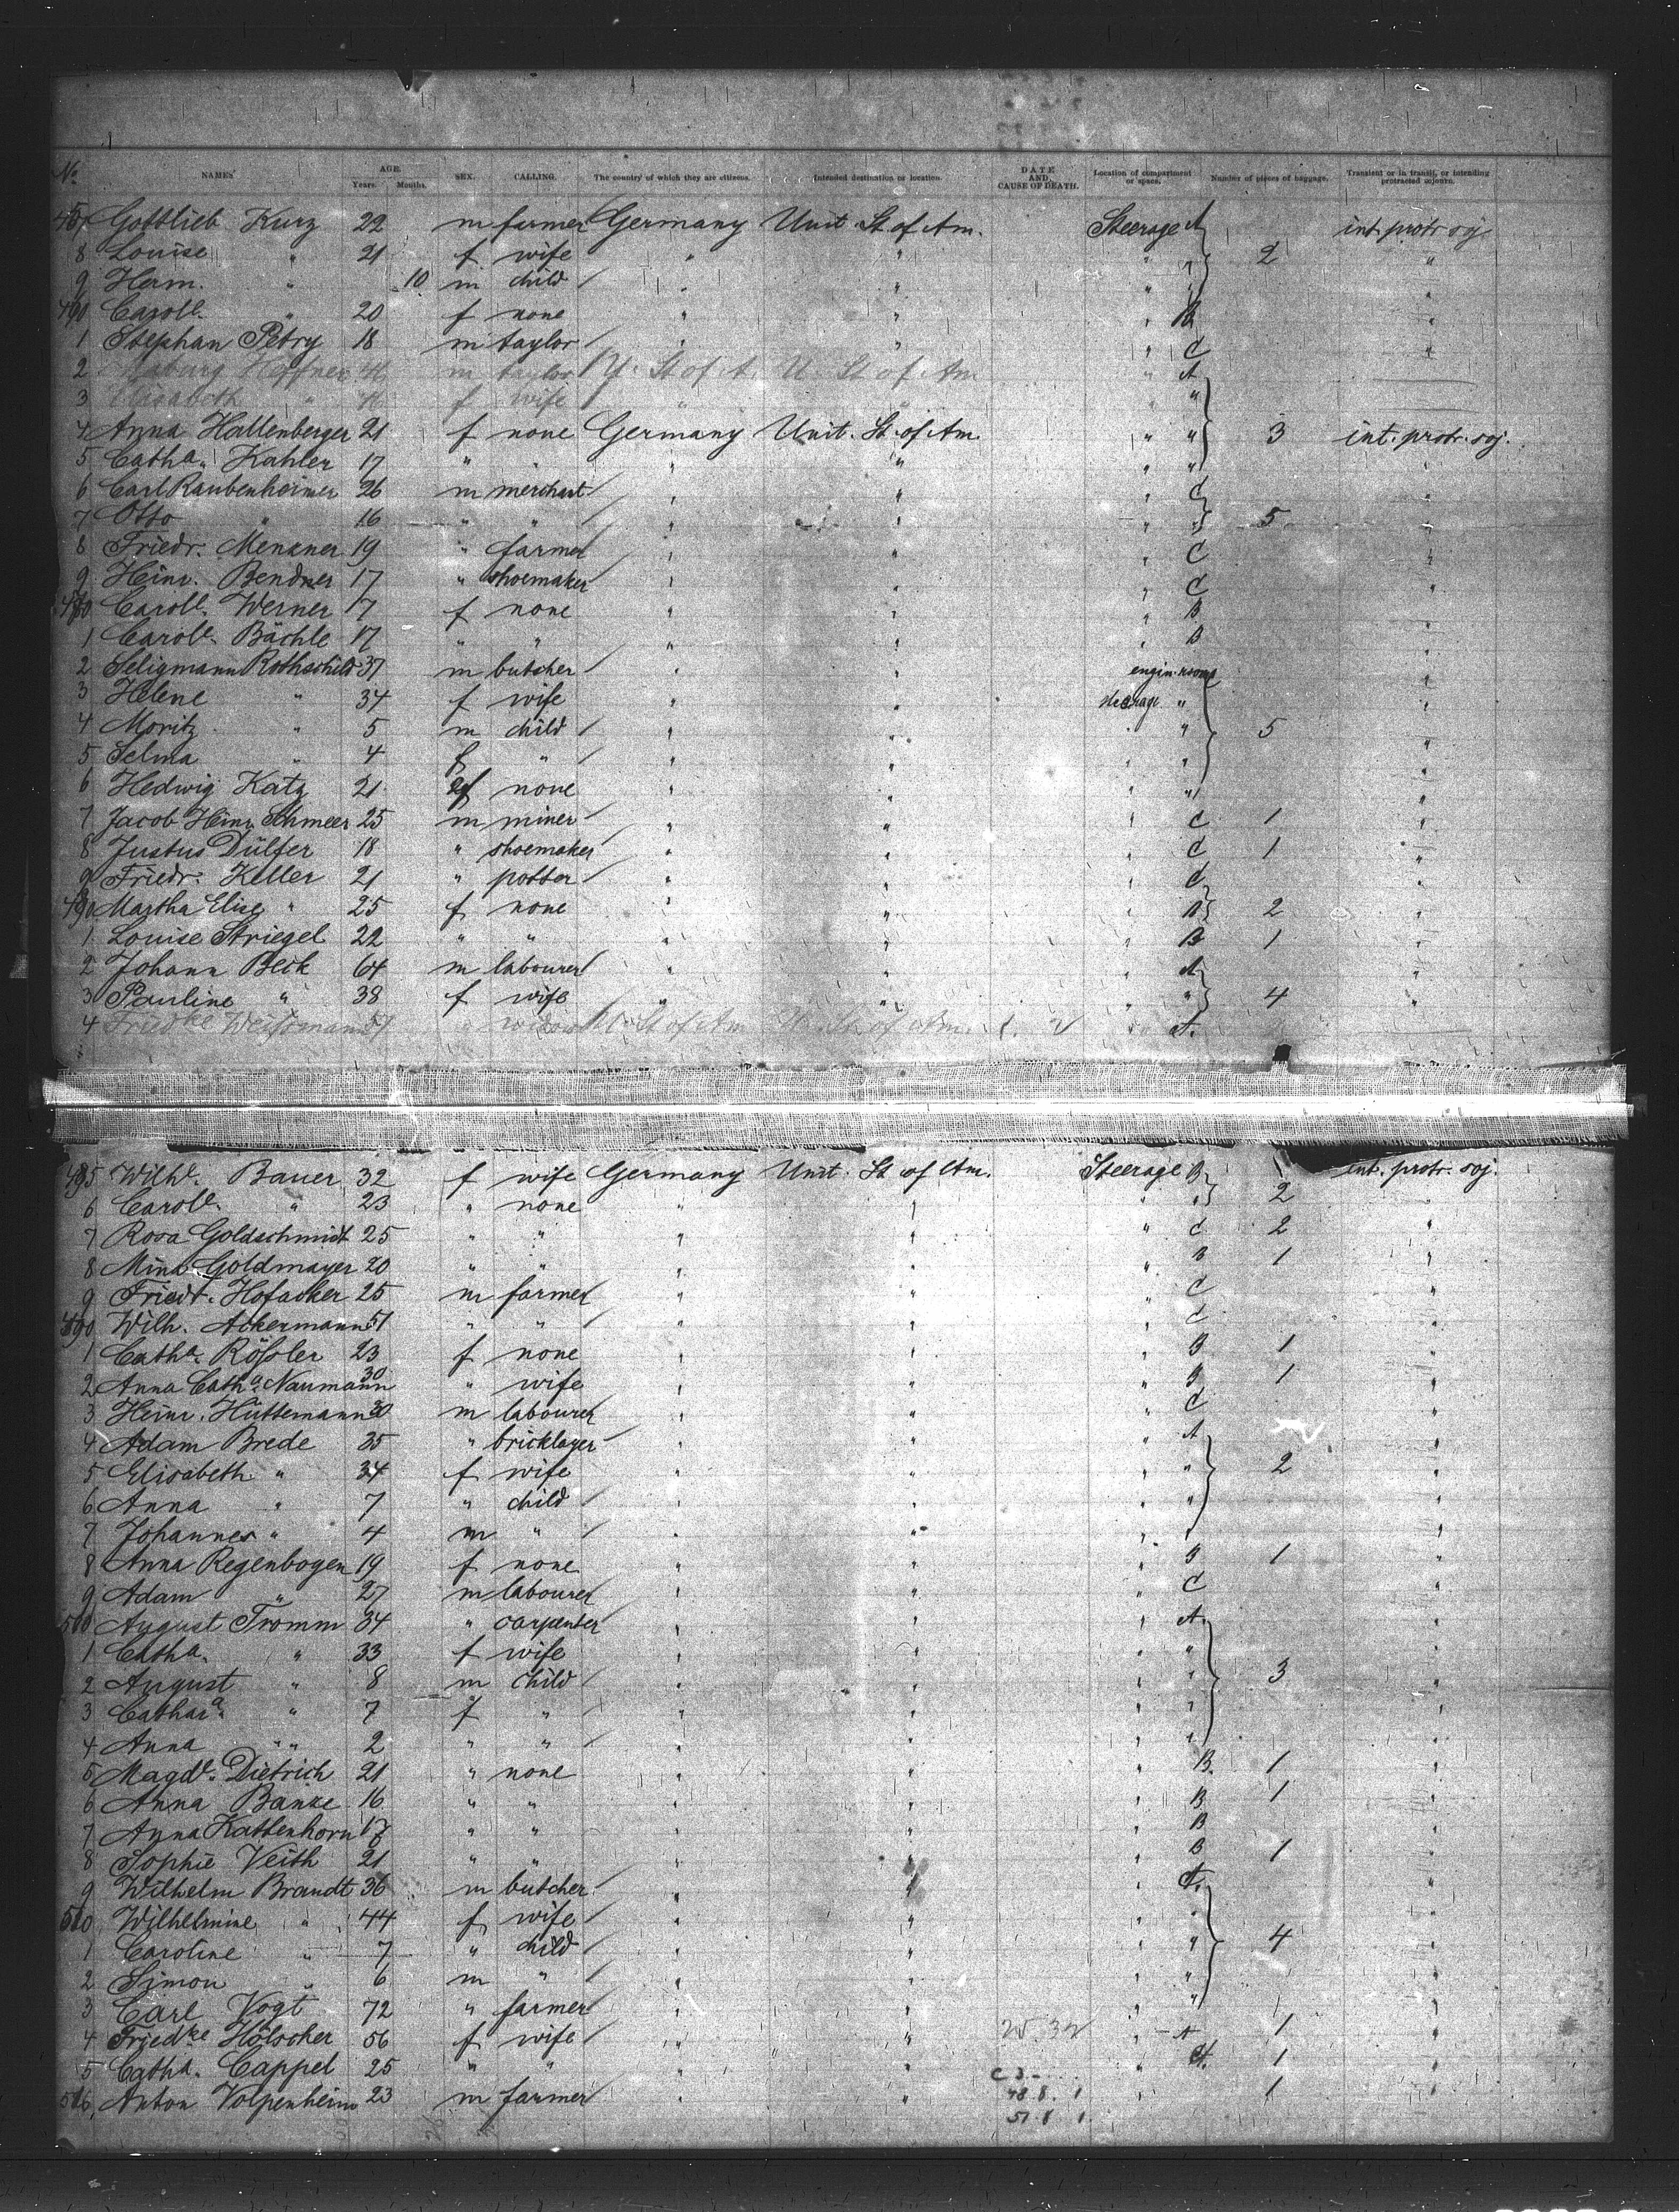 No. NAMES AGE. Years. Months. SEX. CALLING. The country of which they are citizens. Intended destination or location. DATE AND CAUSE OF DEATH. Location of compartment or space. Number of pieces of baggage. Transient or in transit, or intending protracted sojourn.
Gottlieb Kurz 22 m farmer Germany Unit. St. of Am. Steerage A int. protr. soj.
8 Louise " 21 f wife " " " " 2 "
9 Herm. " 10 m child " " " " "
Carole. " 20 f none " " " B "
1 Stephan Petry 18 m taylor " " " C "
2 Heffner m taylor U. St of A. U. St of Am " A
3 Elisabeth " f wife " " " "
4 Anna Hallenberger 21 f none Germany Unit. St. of Am. " " 3 int. protr. soj.
5 Catha. Kahler 17 " " " " " " "
6 Carl Raubenheimer 26 m merchant " " " C "
7 Otto " 16 " " " " " " 5 "
8 Friedr. Menzner 19 " farmer " " " C "
9 Heinr. Bendner 17 " shoemaker " " " C "
Carole. Werner 17 f none " " " B "
1 Carole. Bächle 17 " " " " " B "
2 Seligmann Rothschild 37 m butcher " " engin. room "
3 Helene " 34 f wife " " steerage " "
4 Moritz " 5 m child " " " " 5 "
5 Selma " 4 f " " " " " "
6 Hedwig Katz 21 f none " " " "
7 Jacob Heinr. Schmeer 25 m miner " " " C 1 "
8 Justus Dülfer 18 " shoemaker " " " C 1 "
9 Friedr. Keller 21 " potter " " " C "
Martha Elise " 25 f none " " " B 2 "
1 Louise Striegel 22 " " " " " B 1 "
2 Johann Beck 64 m labourer " " " A "
3 Pauline " 38 f wife " " " " 4 "
4 Friedke Weissmann 57 " widow U. St of Am U. St. of Am. A.
Wilhe. Bauer 32 f wife Germany Unit. St of Am. Steerage B int. protr. soj.
6 Carole. " 23 " none " " " " 2
7 Rosa Goldschmidt 25 " " " " " C 2 "
8 Mina Goldmayer 20 " " " " " B 1 "
9 Friedr. Hofacker 25 m farmer " " " C "
Wilh. Ackermann 51 " " " " " C "
1 Catha. Rößler 23 f none " " " B 1 "
2 Anna Catha. Naumann 30 " wife " " " B 1 "
3 Heinr. Hüttemann 30 m labourer " " " C "
4 Adam Brede 35 " bricklayer " " " A "
5 Elisabeth " 34 f wife " " " " 2 "
6 Anna " 7 " child " " " " "
7 Johannes " 4 m " " " " " "
8 Anna Regenbogen 19 f none " " " B 1 "
9 Adam " 27 m labourer " " " C "
500 August Tromm 34 " carpenter " " " A. "
1 Catha. " 33 f wife " " " " "
2 August " 8 m child " " " " 3 "
3 Cathara. " 7 f " " " " " "
4 Anna " " 2 " " " " " " "
5 Magde. Dietrich 21 " none " " " B. 1 "
6 Anna Banze 16 " " " " " B 1 "
7 Anna Kattenhorn 17 " " " " " B "
8 Sophie Veith 21 " " " " " B 1 "
9 Wilhelm Brandt 36 m butcher " " " A. "
510 Wilhelmine " 44 f wife " " " " "
1 Caroline " 7 " child " " " " 4 "
2 Simon " 6 m " " " " " "
3 Carl Vogt 72 " farmer " " " " "
4 Friedke Hölscher 56 f wife " " " A 1 "
5 Catha. Cappel 25 " " " " " A. 1 "
516. Anton Volpenheim 23 m farmer " " " 1 "